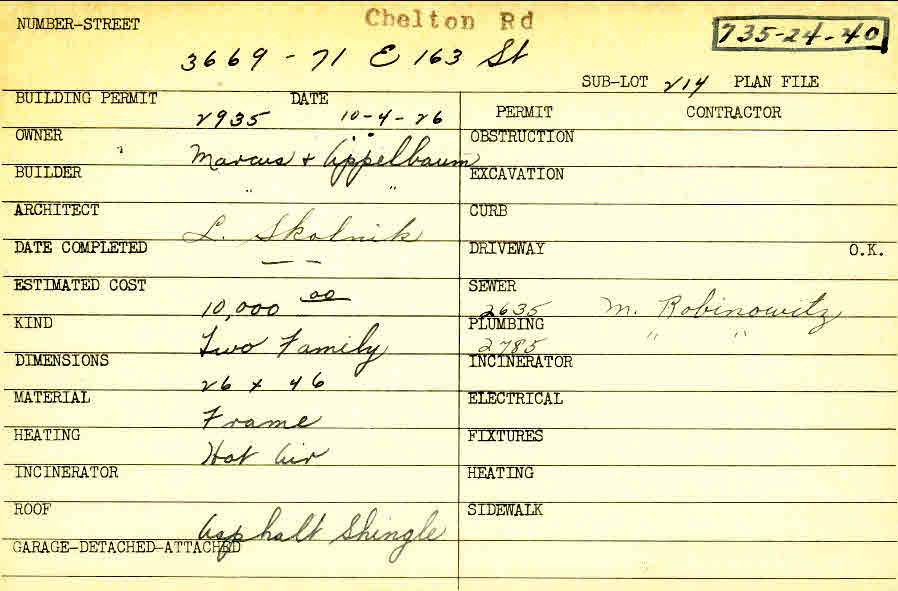 NUMBER-STREET Chelton Rd 735-24-40
3669-71 E 163 St
SUB-LOT 214 PLAN FILE
BUILDING PERMIT DATE PERMIT CONTRACTOR
2935 10-4-26
OWNER OBSTRUCTION
Marcus + Appelbaum
BUILDER EXCAVATION
" "
ARCHITECT CURB
L. Skolnik
DATE COMPLETED DRIVEWAY O.K.
— —
ESTIMATED COST SEWER
10,000 00 2635 M. Robinowitz
KIND PLUMBING
Two Family 2785 " "
DIMENSIONS INCINERATOR
26 x 46
MATERIAL ELECTRICAL
Frame
HEATING FIXTURES
Hot Air
INCINERATOR HEATING
ROOF SIDEWALK
Asphalt Shingle
GARAGE-DETACHED-ATTACHED